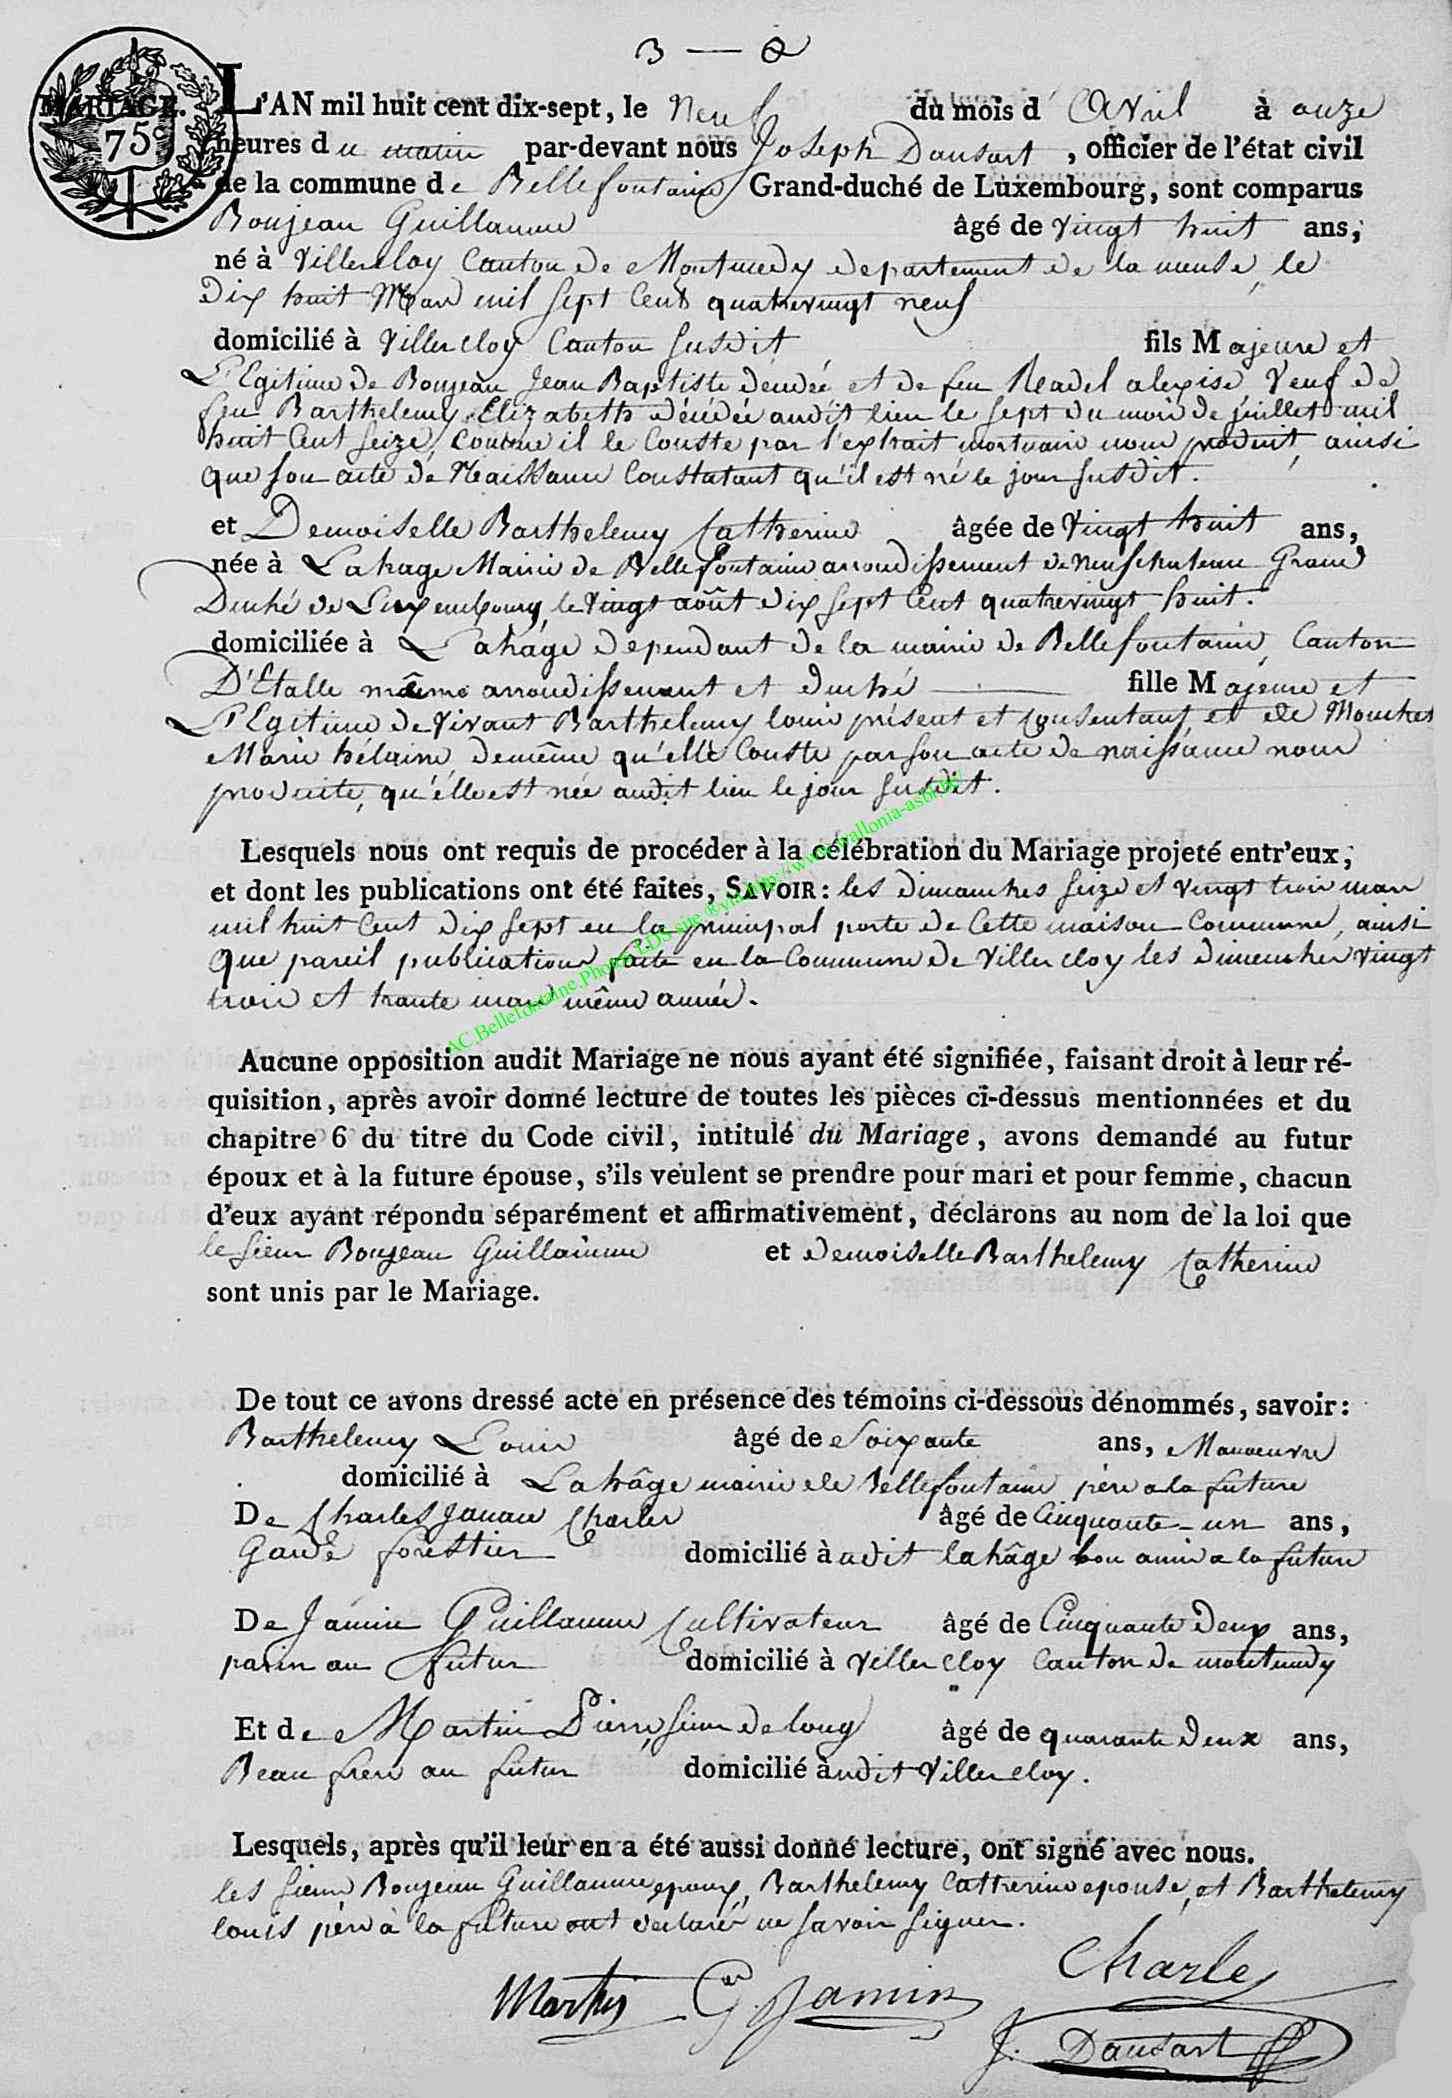 3 — 2
MARIAGE. L'AN mil huit cent dix-sept, le Neuf du mois d'Avril à onze
75c
heures du matin par-devant nous Joseph Dansart, officier de l'état civil
de la commune de Bellefontaine Grand-duché de Luxembourg, sont comparus
Boujean Guillaume âgé de vingt huit ans,
né à Villercloy Canton de Montmedy departement de la meuse, le
Dix huit Mars mil Sept Cent quatrevingt neuf
domicilié à Villercloy Canton susdit fils Majeure et
LEgitime de Boujean Jean Baptiste décédée et de feu alexise Veuf de
feu Barthelemy Elizabeth décédée audit lieu le sept du mois de juillet mil
huit Cent seize, comme il le Conste par l'extrait mortuaire nous produit, ainsi
que son acte de Naissance Constatant qu'il est né le jour susdit.
et Demoiselle Barthelemy Catherine âgée de Vingt huit ans,
née à Lahage Mairie de Bellefontaine arroudissement de neufchateau Grand
Duché de Luxembourg, le vingt août dix sept Cent quatrevingt huit.
domiciliée à Lahage dependant de la mairie de Bellefontaine, Canton
D'Etalle même arroudissement et duché — fille Majeure et
LEgitime de Vivant Barthelemy louis présent et consentant et de Mouchet
Marie hélaine demême qu'elle Conste par son acte de naissance nous
produite, qu'élle est née audit lieu le jour susdit.
Lesquels nous ont requis de procéder à la célébration du Mariage projeté entr'eux,
et dont les publications ont été faites, SAVOIR: les dimanches seize et vingt trois mars
mil huit Cent dix sept en la principal porte de Cette maison Commune, ainsi
que pareil publications faite en la Commune de Villercloy les dimenches vingt
trois et trante mars même année.
AC.Bellefontaine.Photos LDS site
Aucune opposition audit Mariage ne nous ayant été signifiée, faisant droit à leur ré-
quisition, après avoir donné lecture de toutes les pièces ci-dessus mentionnées et du
chapitre 6 du titre du Code civil, intitulé du Mariage, avons demandé au futur
époux et à la future épouse, s'ils veulent se prendre pour mari et pour femme, chacun
d'eux ayant répondu séparément et affirmativement, déclarons au nom de la loi que
le sieur Boujean Guillaume et demoiselle Barthelemy Catherine
sont unis par le Mariage.
De tout ce avons dressé acte en présence des témoins ci-dessous dénommés, savoir:
Barthelemy Louis âgé de Soixante ans, Manoeuvre
domicilié à Lahâge mairie de Bellefontaine père a la future
De Charles Charles âgé de Cinquante-un ans,
Garde forestier domicilié à udit lahâge bon amis a la future
De Jamin Guillaume Cultivateur âgé de Cinquante Deux ans,
parin au futur domicilié à Villercloy Canton de montmedy
Et de Martin Pierre, sieur de long âgé de quarante deux ans,
Beau frere au futur domicilié audit Villercloy.
Lesquels, après qu'il leur en a été aussi donné lecture, ont signé avec nous.
les sieurs Boujean Guillaume epoux, Barthelemy Catherine epouse, et Barthelemy
louis père à la future ont declarér ne savoir signer.
Martin G. Jamin Charle
J. Dansart